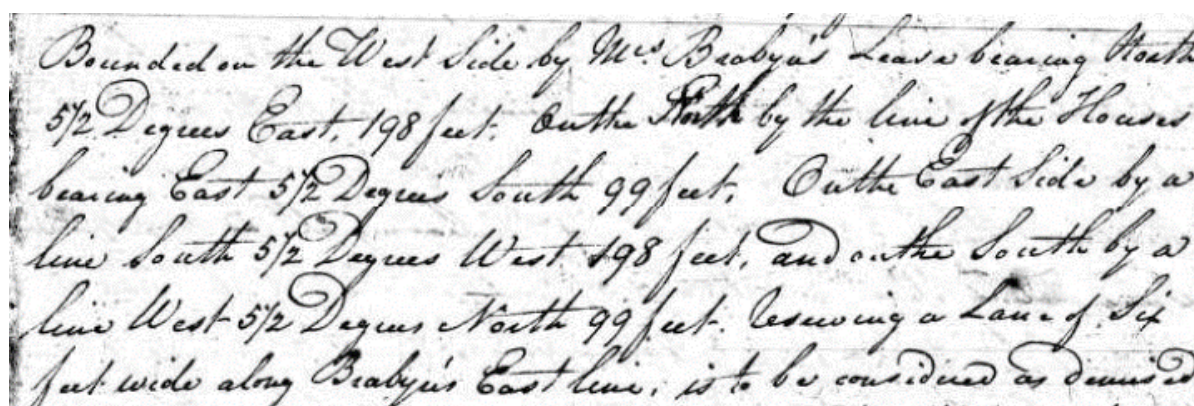 Bounded on the West Side by Mrs. Brabyn's Lease bearing North
5 1/2 Degrees East, 198 feet. On the North by the line of the Houses
bearing East 5 1/2 Degrees South 99 feet, On the East Side by a
line South 5 1/2 Degrees West 198 feet, and on the South by a
line West 5 1/2 Degrees North 99 feet. Reserving a Lane of Six
feet wide along Brabyn's East line, is to be considered as demised